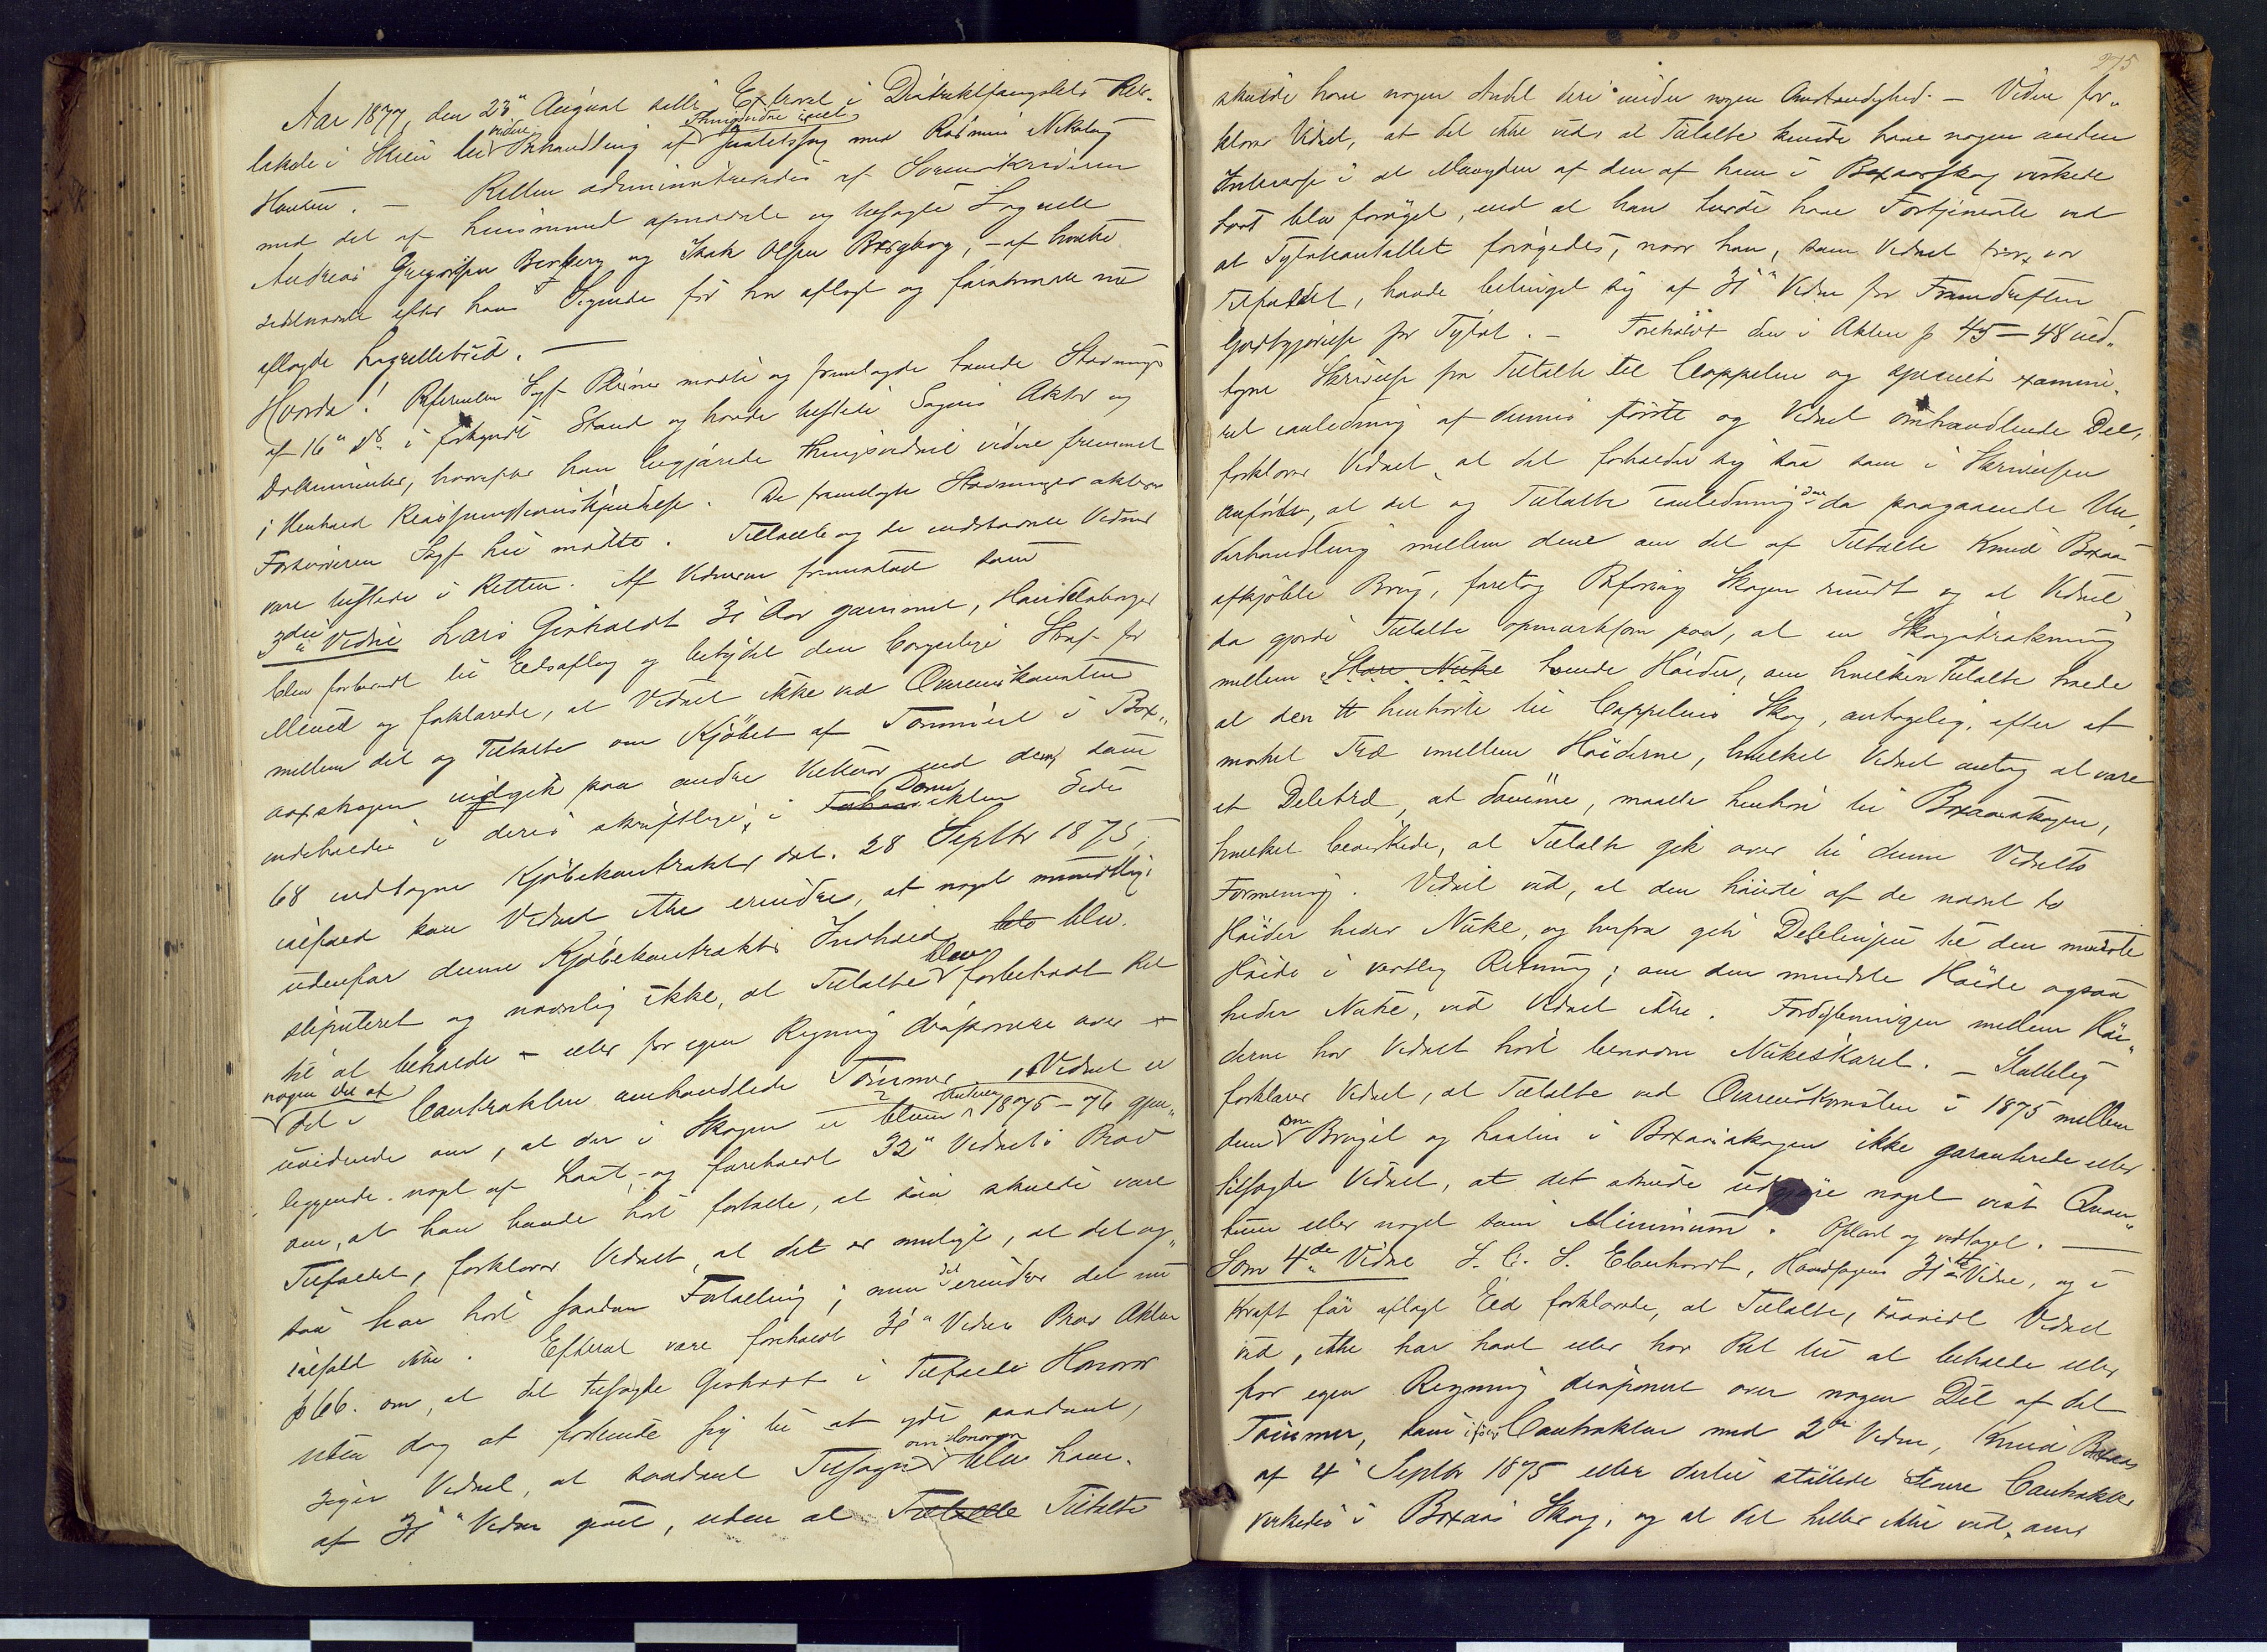 Aar 1877, den 23de August sattes Extraret i Distriktsfængslets Ret-
lokale i Skien til videre Behandling af Thingsvidne i Justitssag mod Rasmus Nikolay
Hansen. — Retten administreredes af Sorenskriveren
med det af Lensmand opnævnte og tilsagte Lagrette
Andreas Gregersen Berberg og Isak Olsen Bergborg, – af hvilke
sidstnævnte efter hans Sigende før har aflagt og førstnævnte nu
aflagde Lagretteed. —
Hvorda! Referenten Sagf. Pleiner mødte og fremlagde tvende Stævninger
af 16de ds. i forkyndt Stand og havde tilstede Sagens Akter og
Dokumenter, hvorefter han begjærede Thingsvidnet videre fremmet
i Henhold Reassumtionskjendelse. De fremlagte Stævninger akteres
Forsvareren Sagf. mødte. Tiltalte og de indstævnte Vidner
vare tilstede i Retten. Af Vidnerne fremstod som
3die Vidne Lars Gishardt 31 Aar gammel, Handelsborger
blev forberedt til Edsaflæg og betydet den borgerlige Straf for
Mened og forklarede, at Vidnet ikke ved Overenskomsten
mellem det og Tiltalte om Kjøbet af Tømmeret i Box-
aaskogen indgik paa andre Vilkaar end dem, som
indeholdes i deres skriftlige, i Domakten Side
68 indtagne Kjøbekontrakter dat. 28 Septbr 1875;
ialfald kan Vidnet ikke erindre, at noget mundtlig
udenfor denne Kjøbekontrakts Indhold blev
stipuleret og navnlig ikke, at Tiltalte blev forbeholdt Ret
til at beholde – eller for egen Regning disponere over –
nogen Del af
det i Contrakten omhandlede Tømmer. Vidnet er
uvidende om, at der i Skogen er Vinteren 1875–76 gjen-
liggende noget af Hast, og foreholdt 32te Vidnets Prov
om, at han havde hørt fortælle, at saa skulde være
Tilfældet, forklarer Vidnet, at det er muligt, at det og-
saa har hørt saadan Fortælling; men det erindrer det nu
ialfald ikke. Efterat være foreholdt 31te Vidnes Prov Akten
p 66. om, at det tilsagde Gishardt i Tilfælde Honorar
uden dog at forbinde sig til at yde saadant,
siger Vidnet, at saadant Tilsagn om Honorar blev ham
af 31te Vidne givet, uden at Tiltalte
275
skulde have nogen Andel deri under nogen Omstændighed. — Videre for-
klarer Vidnet, at det ikke veds at Tiltalte kunde have nogen anden
Interesse i at Mængden af den af ham i Boxaasskog virkede
Last blev forøget, end at han turde have Fortjeneste ved
at Tylvteantallet forøgedes, naar han, som Vidnet tror, var
Tilfældet, havde betinget sig af 31te Vidne for Fremdriften
Godtgjørelse pr Tylvt. — Foreholdt den i Akten p 45–48 ind-
tagne Skrivelse fra Tiltalte til Cappelen og specielt exami-
ret i anledning af dennes første og Vidnet omhandlende Del,
forklarer Vidnet, at det forholder sig saa som i Skrivelsen
anført, at det og Tiltalte i anledning den da paagaaende Un-
derhandling mellem dem om det af Tiltalte Knud Boxaas
afkjøbte Brug, foretog Befaring Skogen rundt og at Vidnet
da gjorde Tiltalte opmærksom paa, at en Skogstrækning
mellem Store Nuke tvende Høider, om hvilken Tiltalte troede
at den henhørte til Cappelens Skog, antagelig, efter et
mærket Træ imellem Høiderne, hvilket Vidnet antog at være
et Deletræ, at dømme, maatte henhøre til Boxaaskogen,
hvilket bevirkede, at Tiltalte gik over til denne Vidnets
Formening. Vidnet ved, at den høieste af de nævnte to
Høider heder Nuke, og herfra gik Delelinjen til den mindste
Høide i vestlig Retning; om den mindste Høide ogsaa
heder Nuke, ved Vidnet ikke. Fordybningen mellem Høi-
derne har Vidnet hørt benævne Nukeskaret. — Sluttelig
forklarer Vidnet, at Tiltalte ved Overenskomsten i 1875 mellem
dem om Bruget og Lasten i Boxaaskogen ikke garanterede eller
tilsagde Vidnet, at det skulde udgjøre noget vist Qvan-
tum eller noget som Minimum. Oplæst og vedtaget. —
Som 4de Vidne S. C. S. Eberhardt, Hovedsagens 31te Vidne, og i
Kraft før aflagt Eed forklarede, at Tiltalte, saavidt Vidnet
ved, ikke har havt eller har Ret til at beholde eller
for egen Regning disponere over nogen Del af det
Tømmer, som ifølge Contrakten med 2det Vidne, Knud Boxaas
af 4de Septbr 1875 eller dertil støttede senere Contrakter
virkedes i Boxaas Skog, og at det heller ikke ved, om